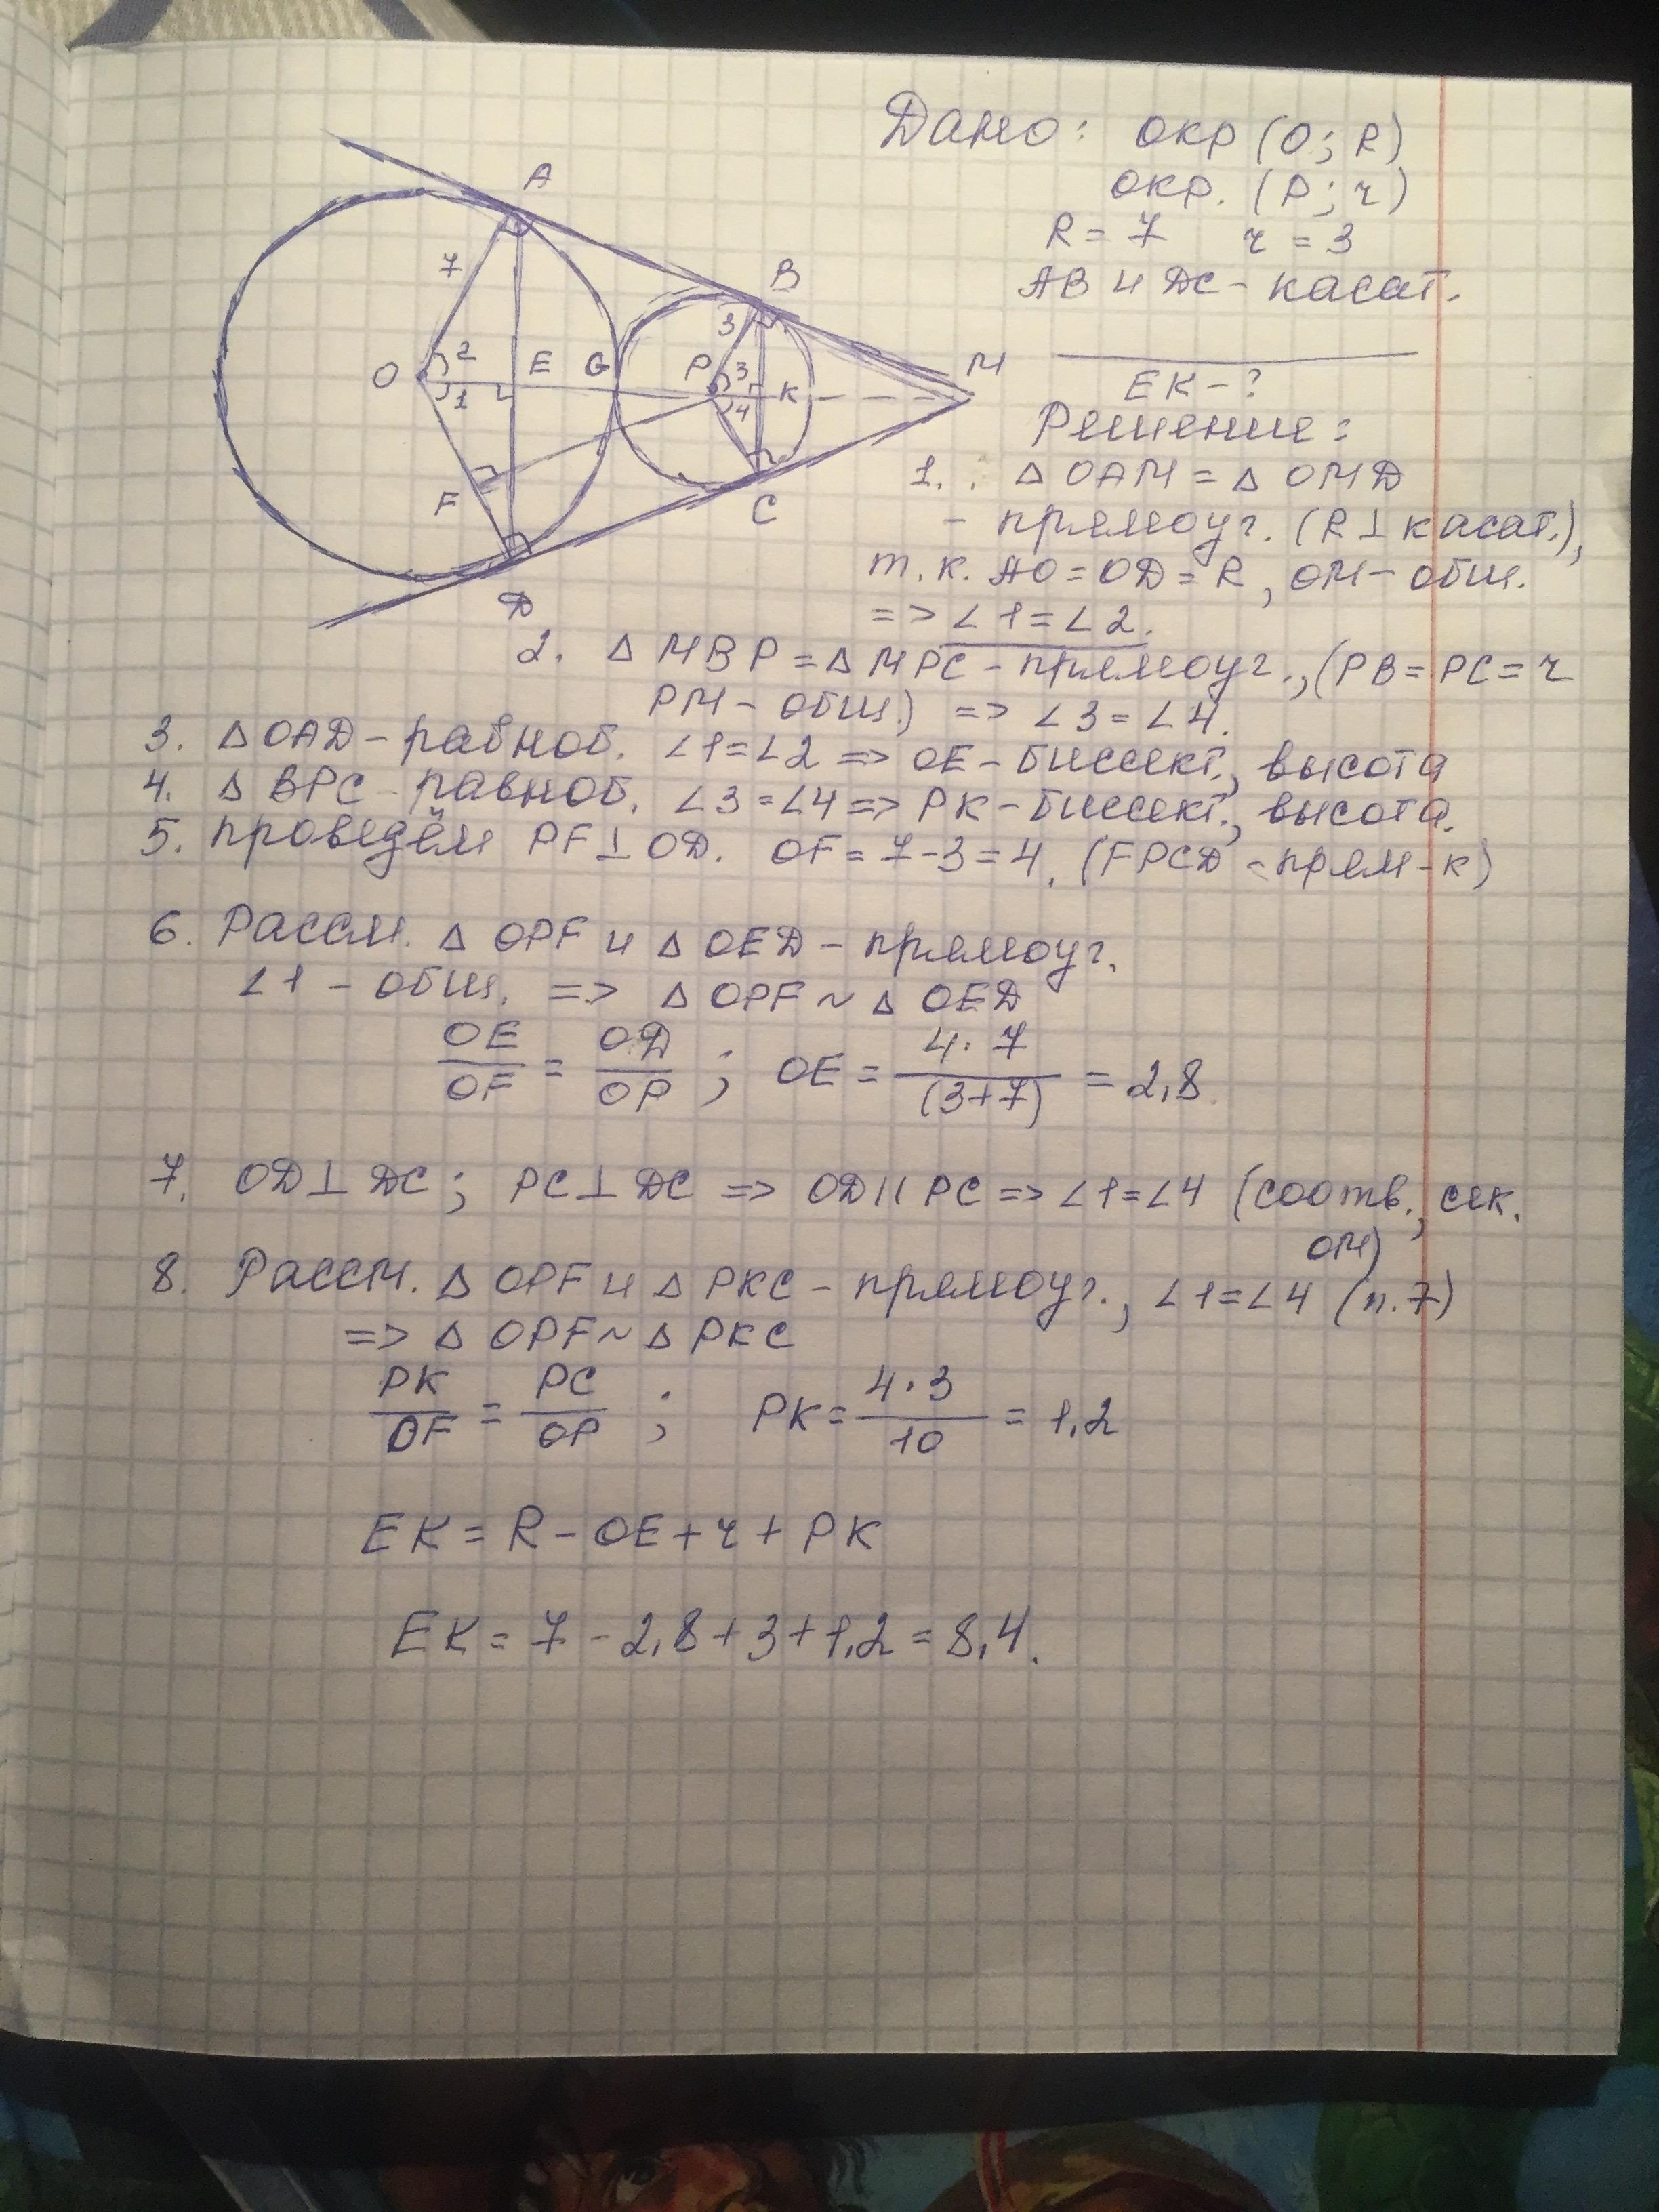 Дано: окр (O; R)
окр. (P; r)
R = 7 r = 3
AB и DC - касат.
EK - ?
A
B
7
3
M
O
2
1
E
G
P
3
4
K
F
C
D
Решение:
1. : △ OAM = △ OMD
- прямоуг. (R ⊥ касат.),
т.к. AO = OD = R, OM - общ.
=> ∠1 = ∠2.
2. △ MBP = △ MPC - прямоуг., (PB = PC = r
PM - общ.) => ∠3 = ∠4.
3. △ OAD - равноб. ∠1 = ∠2 => OE - биссект., высота
4. △ BPC - равноб. ∠3 = ∠4 => PK - биссект., высота.
5. проведём PF ⊥ OD. OF = 7 - 3 = 4. (FPCD - прям-к)
6. Рассм. △ OPF и △ OED - прямоуг.
∠1 - общ. => △ OPF ~ △ OED
OE/OF = OD/OP ; OE = 4·7/(3+7) = 2,8
7. OD ⊥ DC; PC ⊥ DC => OD || PC => ∠1 = ∠4 (соотв., сек.
OM)
8. Рассм. △ OPF и △ PKC - прямоуг., ∠1 = ∠4 (п.7)
=> △ OPF ~ △ PKC
PK/OF = PC/OP ; PK = 4·3/10 = 1,2
EK = R - OE + r + PK
EK = 7 - 2,8 + 3 + 1,2 = 8,4.